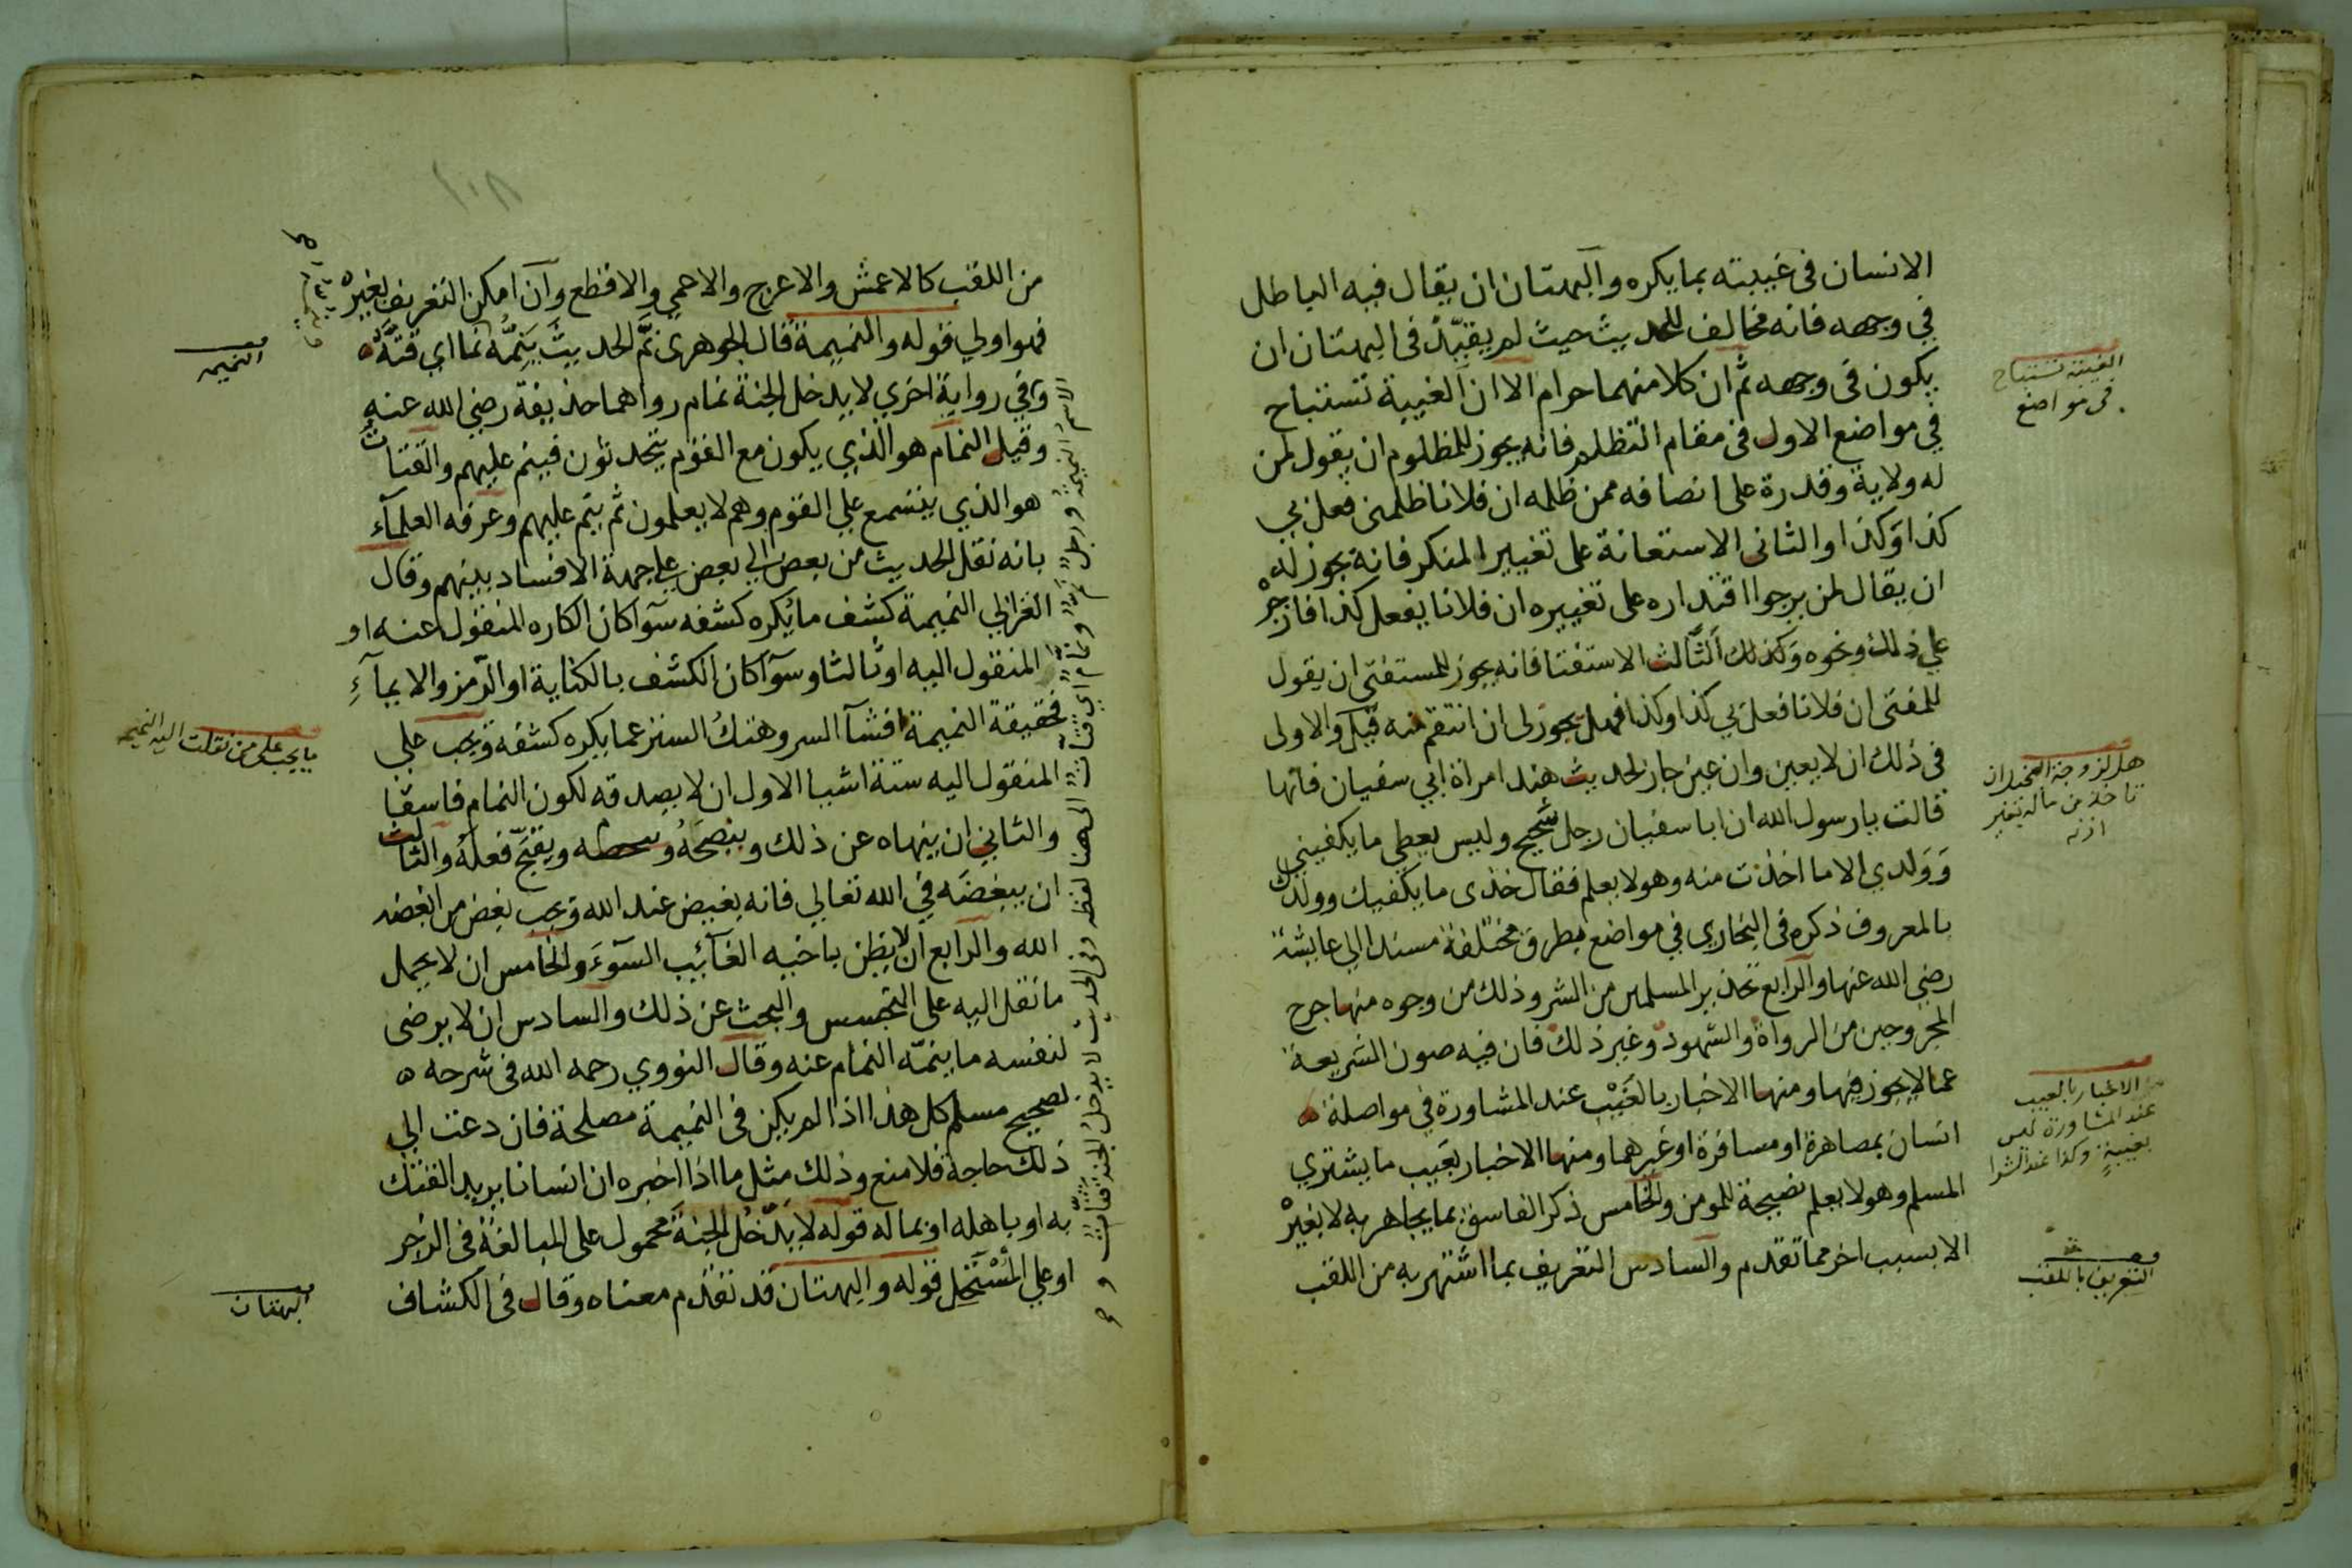 الانسان فى غيبته بما يكره والبهتان ان يقال فيه الباطل
في وجهه فانه مخالف للحديث حيث لم يقيّد فى البهتان ان
يكون فى وجهه ثم ان كلا منهما حرام الا ان الغيبة تستباح
في مواضع الاول فى مقام التظلم فانه يجوز للمظلوم ان يقول لمن
له ولاية وقدرة على انصافه ممن ظلمه ان فلانا ظلمنى فعل بي
كذا وكذا والثانى الاستعانة على تغيير المنكر فانه يجوز له
ان يقال لمن يرجوا اقتداره على تغييره ان فلانا يفعل كذا فازجره
على ذلك ونحوه وكذلك الثالث الاستفتا فانه يجوز للمستفتى ان يقول
للمفتى ان فلانا فعل بي كذا وكذا فهل يجوز لى ان انتقم منه قيل والاولى
فى ذلك ان لا يعين وان عين جاز لحديث هند امراة ابي سفيان فانها
قالت يا رسول الله ان ابا سفيان رجل شحيح وليس يعطي ما يكفيني
وولدي الا ما اخذت منه وهو لا يعلم فقال خذى ما يكفيك وولدك
بالمعروف ذكره فى البخاري في مواضع بطرق مختلفة مسندا الي عايشة
رضي الله عنها والرابع تحذير المسلمين من الشر وذلك من وجوه منها جرح
المجروحين من الرواة والشهود وغير ذلك فان فيه صون الشريعة
عما لا يجوز فيها ومنها الاخبار بالعَيْب عند المشاورة في مواصلة
انسان بمصاهرة او مسافرة او غيرهما ومنها الاخبار بعيب ما يشتري
المسلم وهو لا يعلم نصيحة للمومن والخامس ذكر الفاسق بما يجاهر به لا بغيره
الا بسبب اخر مما تقدم والسادس التعريف بما اشتهر به من اللقب
الغيبة تستباح
فى مواضع
هل لزوجة
تاخذ من ماله بغير
اذنه
الاخبار بالعيب
عند المشاورة ليس
بغيبة وكذا عند الشرا
التعريف باللقب
١٠٨
من اللقب كالاعمش والاعرج والاعمي والاقطع وان امكن التعريف بغيره
فهو اولي قوله والنميمة قال الجوهرى نَمَّ الحديثَ يَنِمُّه نمّا اي قتّه
وفي رواية اخري لا يدخل الجنة نمام رواهما حذيفة رضي الله عنه
وقيل النمام هو الذي يكون مع القوم يتحدثون فينم عليهم والقتات
هو الذي يتسمع علي القوم وهم لا يعلمون ثم ينم عليهم وعرفه العلمآء
بانه نقل الحديث من بعض الي بعض علي جهة الافساد بينهم وقال
الغزالي النميمة كشف ما يُكره كشفه سوآ كان الكاره المنقول عنه او
المنقول اليه او ثالثا وسوآ كان الكشف بالكتابة او الرمز والايمآء
فحقيقة النميمة افشآ السر وهتك الستر عما يكره كشفه ويجب على
المنقول اليه ستة اشيا الاول ان لا يصدقه لكون النمام فاسقا
والثاني ان ينهاه عن ذلك وينصحه ويقبّح فعله والثالث
ان يبغضه في الله تعالي فانه بغيض عند الله ويجب بغض من ابغضه
الله والرابع ان لا يظن باخيه الغآئب السوء والخامس ان لا يحمل
ما نقل اليه على التجسس والبحث عن ذلك والسادس ان لا يرضى
لنفسه ما ينمّه النمام عنه وقال النووي رحمه الله فى شرحه
لصحيح مسلم كل هذا اذا لم يكن فى النميمة مصلحة فان دعت الي
ذلك حاجة فلا منع وذلك مثل ما اذا اخبره ان انسانا يريد الفتك
به او باهله او بماله قوله لا يدخل الجنة محمول على المبالغة فى الزجر
او علي المُسْتَحِل قوله والبهتان قد تقدم معناه وقال فى الكشاف
النميمه
ما يجب على من نقلت اليه النميمه
البهتان